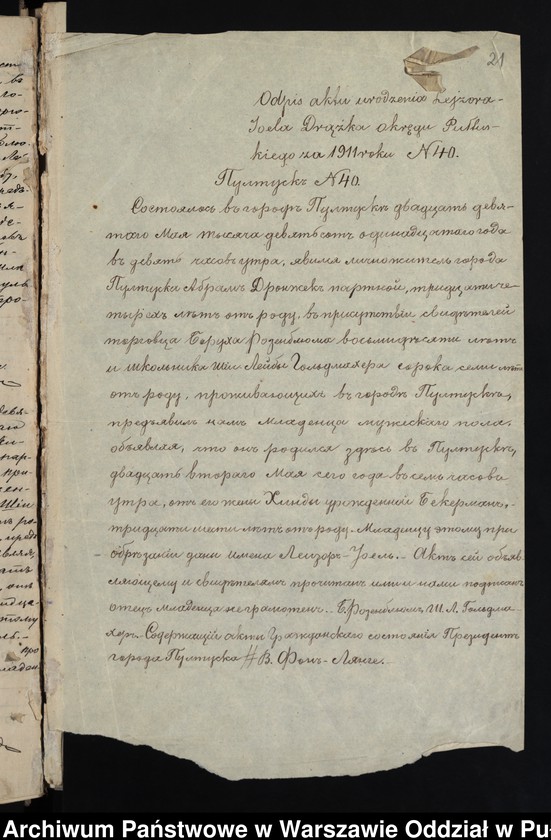 21
Odpis aktu urodzenia Lejzora-
Joela Drążka okręgu Pułtus-
kiego za 1911 roku N40.
Пултускъ N40.
Состоялось въ городѣ Пултускѣ двадцать девя-
таго Мая тысяча девятьсотъ одинадцатаго года
въ девять часовъ утра, явился житель города
Пултуска Абрамъ Дронжекъ портной, тридцати че-
тырехъ лѣтъ отъ роду, въ присутствіи свидѣтелей
торговца Боруха Розенблюма восьмидесяти лѣтъ
и школьника Шіи Лейбы Гольдмахера сорока семи лѣтъ
отъ роду, проживающихъ въ городѣ Пултускѣ,
предъявилъ намъ младенца мужескаго пола,
объявляя, что онъ родился здѣсь въ Пултускѣ,
двадцать втораго Мая сего года восемь часовъ
утра, отъ его жены Хинды урожденной Бекерманъ,-
тридцати шести лѣтъ отъ роду. Младенцу этому при
обрѣзаніи даны имена Лейзоръ-Іоель.- Актъ сей объяв-
ляющему и свидѣтелямъ прочитанъ ими и нами подписанъ
отецъ младенца неграмотенъ.- Б. Розенблюмъ Ш. Л. Гольдма-
херъ.- Содержащій акты Гражданскаго состоянія Президентъ
города Пултуска В. Фонъ-Лянге.-
Archiwum Państwowe w Warszawie Oddział w Pu